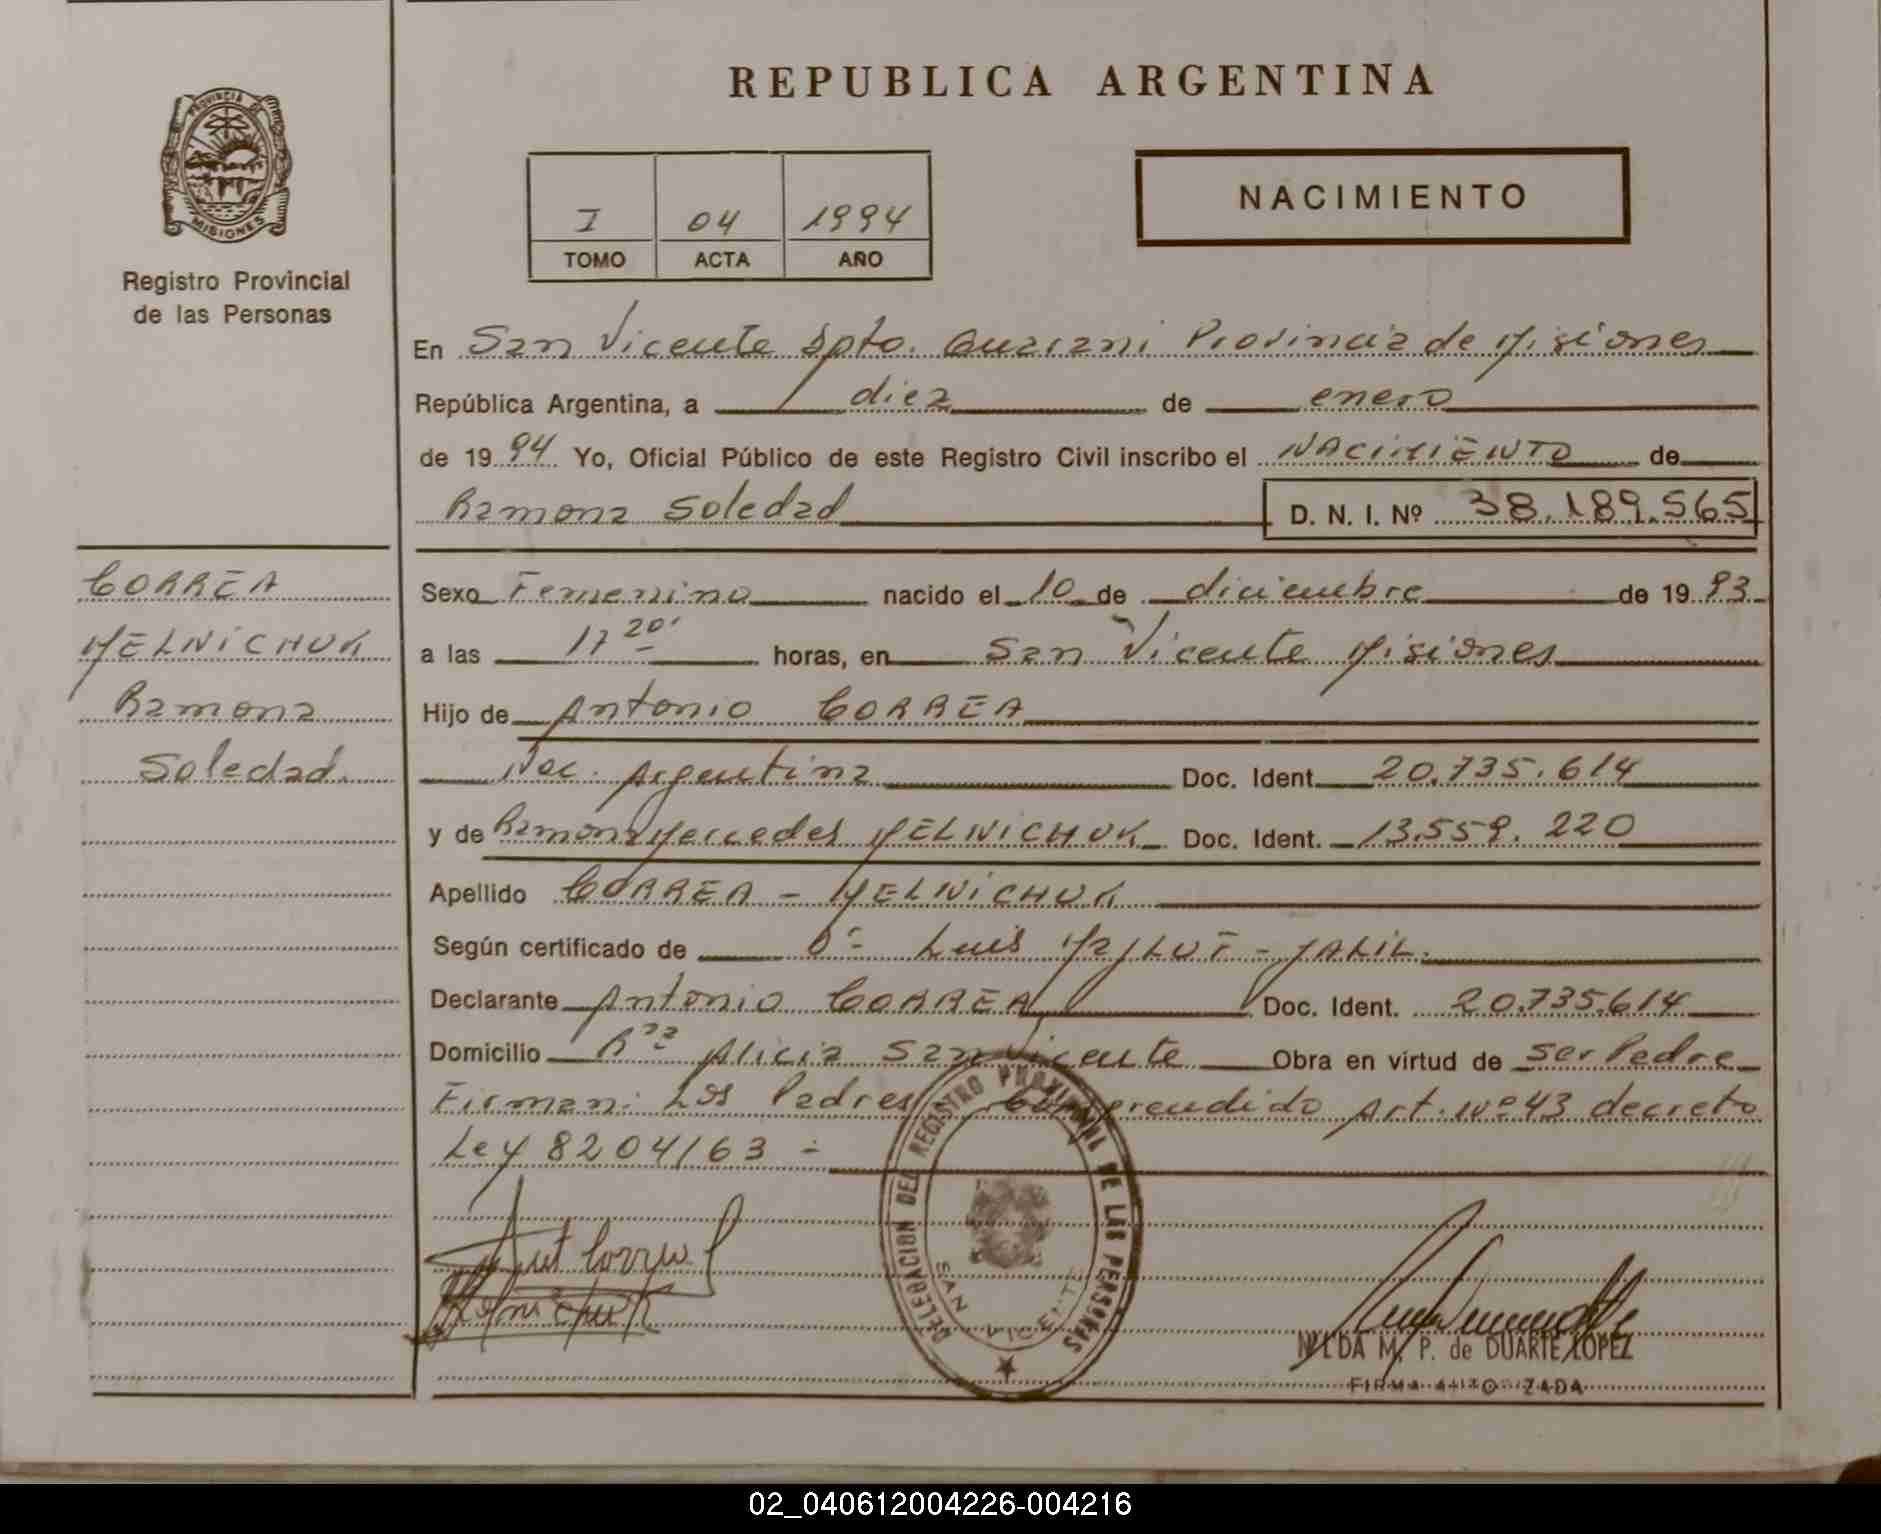 REPUBLICA ARGENTINA
PROVINCIA DE MISIONES
Registro Provincial
de las Personas
NACIMIENTO
I 04 1994
TOMO ACTA AÑO
En San Vicente Dpto. Guarani Provincia de Misiones
República Argentina, a diez de enero
de 1994 Yo, Oficial Público de este Registro Civil inscribo el NACIMIENTO de
Ramona Soledad D. N. I. Nº 38.189.565
CORREA
MELNICHUK
Ramona
Soledad
Sexo Femenino nacido el 10 de diciembre de 1993
a las 17 20' horas, en San Vicente Misiones
Hijo de Antonio CORREA
Nac. Argentina Doc. Ident. 20.735.614
y de Ramona Mercedes MELNICHUK Doc. Ident. 13.559.220
Apellido CORREA - MELNICHUK
Según certificado de Luis - JALIL.
Declarante Antonio CORREA Doc. Ident. 20.735.614
Domicilio Alicia San Vicente Obra en virtud de ser Padre
Firman: Los Padres Comprendido Art. Nº 43 decreto
Ley 8204/63 -
DELEGACION DEL REGISTRO PROVINCIAL DE LAS PERSONAS
SAN VICENTE
Ant Correa
Melnichuk
NILDA M. P. de DUARTE LOPEZ
FIRMA AUTORIZADA
02_040612004226-004216